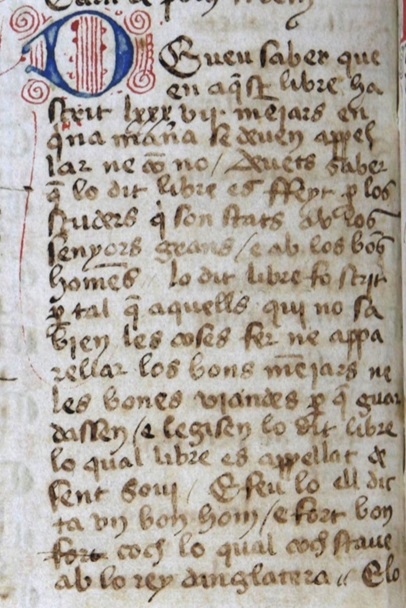 DEueu saber que
en aq̃st libre ha
scrit lxxx vij meiars en
q̃na mañ̃a se deuen appel
lar ne cõ no / Deuets saber
q̃ lo dit libre es ffeyt ꝑ los
scuders q̃ son stats ab los
senyors grans / e ab los bõs
homẽs lo dit libre fo scrit
ꝑ tal q̃ aquells qui no sa
bien les coses fer ne appa
rellar los bons mẽiars ne
les bones viandes ꝑ q̃ guar
dassen / e legisen lo dit libre
lo qual libre es appellat de
sent soui / E feu lo ell dic
ta vn bon hom / e fort bon
fort coch lo qual coch staue
ab lo rey danglatera // E lo